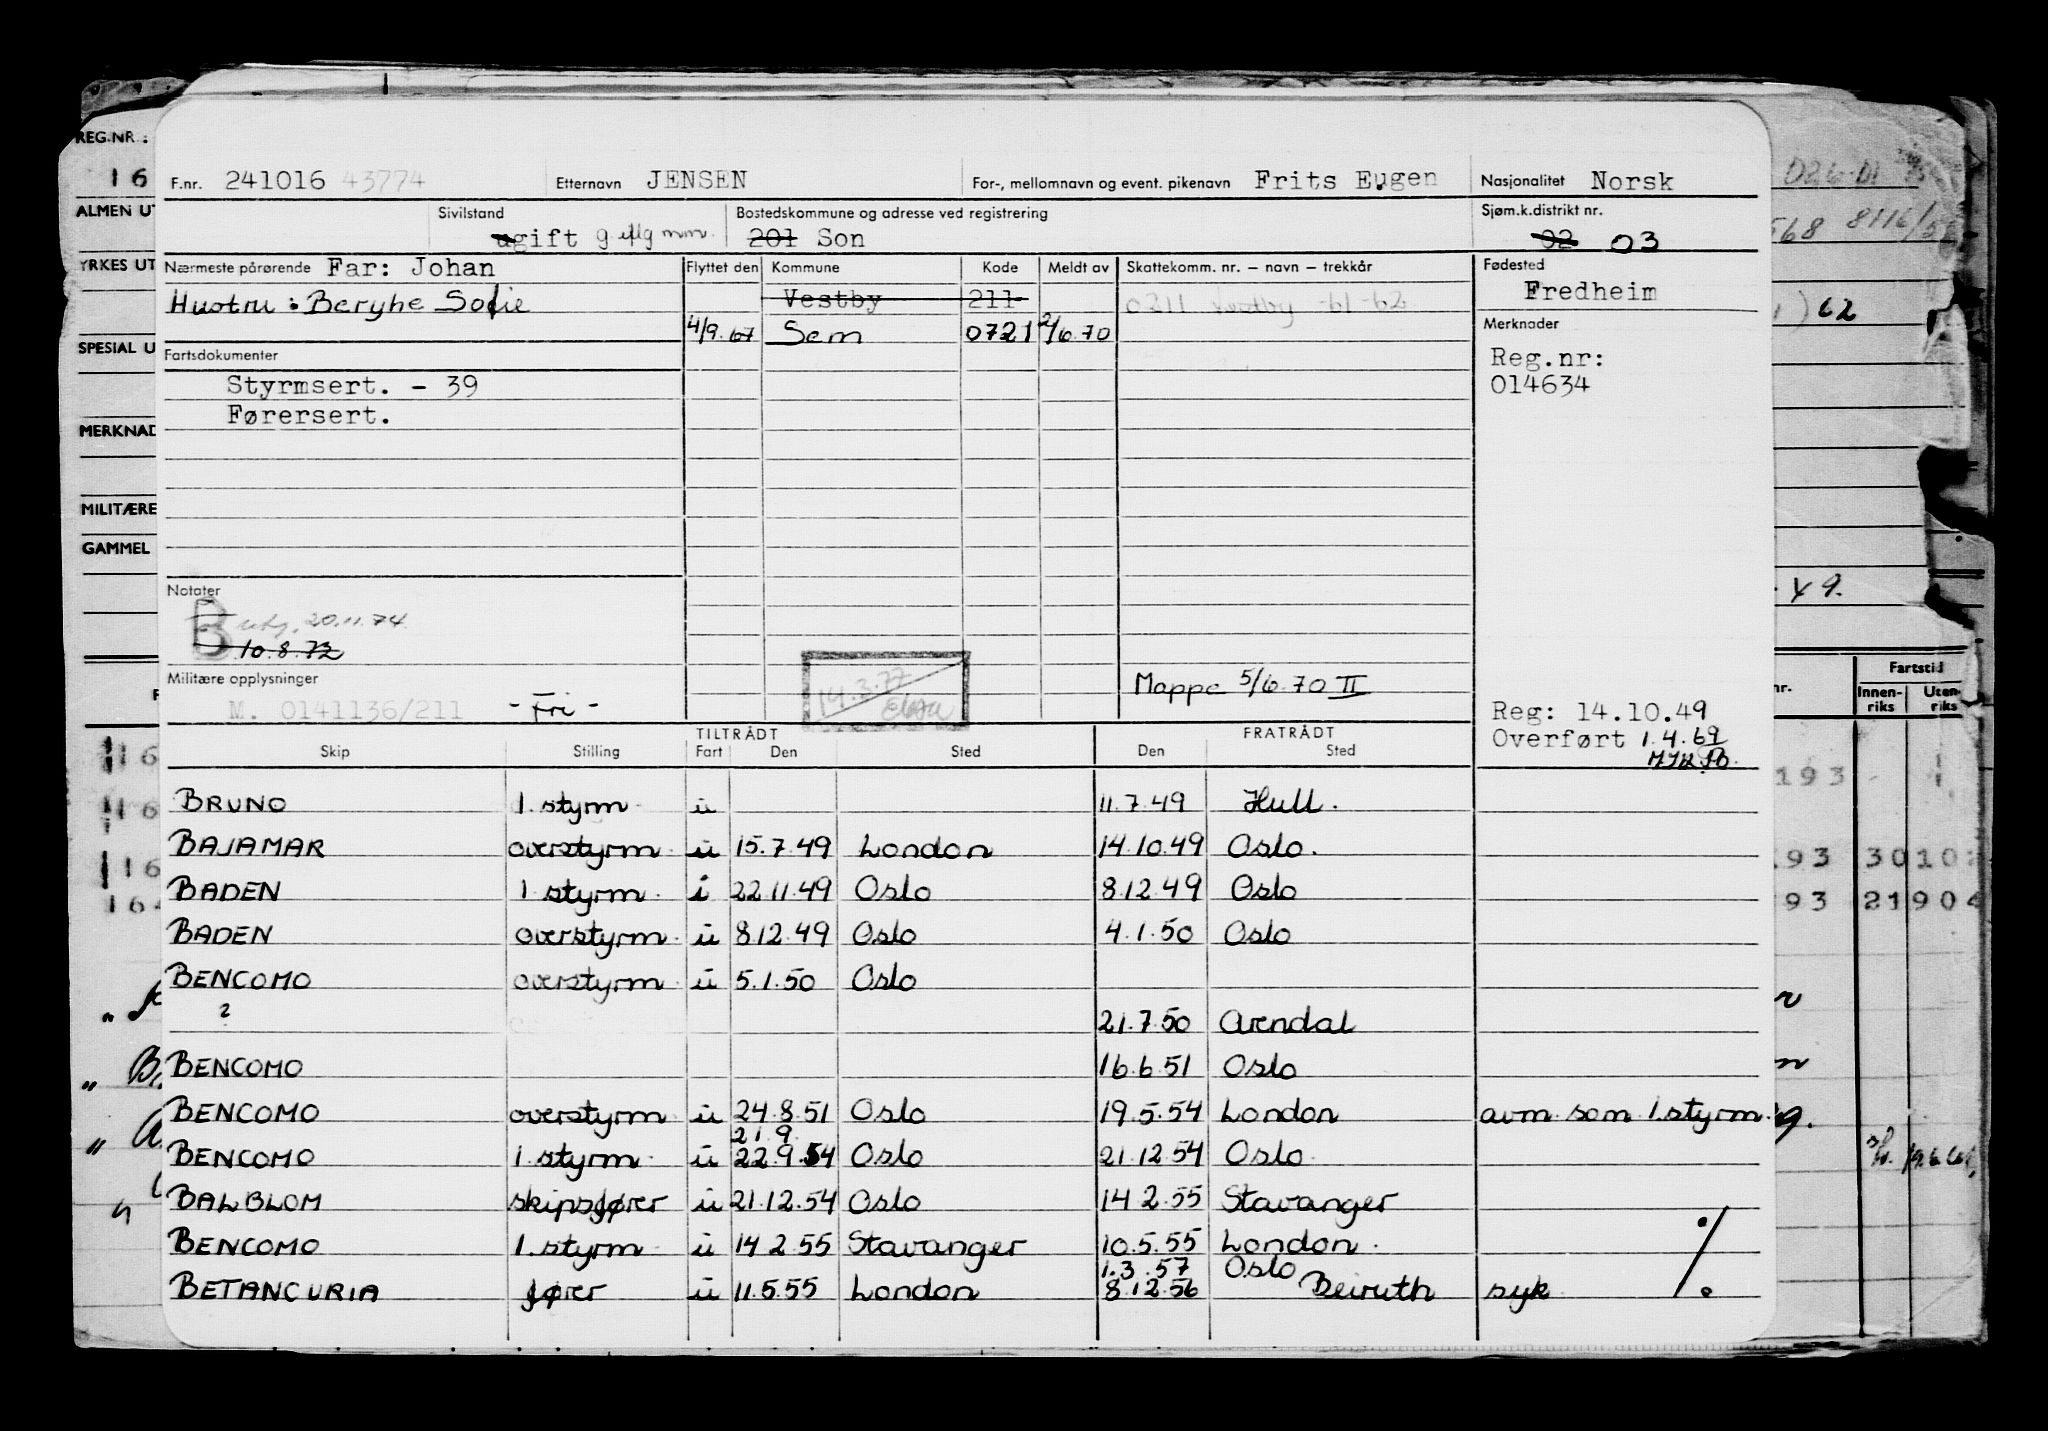 REG.NR.:
16
ALMEN UT
YRKES UT
SPESIAL U
MERKNAD
MILITÆRE
GAMMEL
F.nr. 241016 43774 Etternavn JENSEN For-, mellomnavn og event. pikenavn Frits Eugen Nasjonalitet Norsk
Sivilstand Bostedskommune og adresse ved registrering Sjøm.k.distrikt nr.
ugift g 201 Son 02 03
Nærmeste pårørende Far: Johan Flyttet den Kommune Kode Meldt av Skattekomm. nr. – navn – trekkår Fødested
Fredheim
Hustru: Beryhe Sofie Vestby 211 0211 Vestby -61-62
4/9.67 Sem 0721 2/6.70 Merknader
Fartsdokumenter Reg.nr:
Styrmsert. - 39 014634
Førersert.
Notater
B 20.11.74
10.8.72
Militære opplysninger Mappe 5/6.70 II
M. 0141136/211 - Fri - 14.3.77
Reg: 14.10.49
Overført 1.4.69
TILTRÅDT FRATRÅDT
Skip Stilling Fart Den Sted Den Sted
BRUNO 1. styrm u 11.7.49 Hull.
BAJAMAR overstyrm. u 15.7.49 London 14.10.49 Oslo.
BADEN 1 styrm. i 22.11.49 Oslo 8.12.49 Oslo
BADEN overstyrm. u 8.12.49 Oslo 4.1.50 Oslo
BENCOMO overstyrm u 5.1.50 Oslo
? 21.7.50 Arendal
BENCOMO 16.6.51 Oslo
BENCOMO overstyrm u 24.8.51 Oslo 19.5.54 London avm. som 1.styrm.
21.9.
BENCOMO 1. styrm. u 22.9.54 Oslo 21.12.54 Oslo.
BALBLOM skipsfører u 21.12.54 Oslo 14.2.55 Stavanger
BENCOMO 1. styrm. u 14.2.55 Stavanger 10.5.55 London.
1.3.57 Oslo
BETANCURIA fører u 11.5.55 London 8.12.56 Beiruth syk ./.
8116/
62
49.
Fartstid
nr. Innen-riks Uten-riks
193
93 30 10
93 21 904